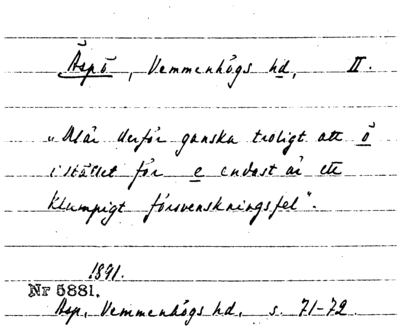 Äspö, Vemmenhögs hd, II.
„Det är derför ganska troligt att ö
i stället för e endast är ett
klumpigt försvenskningsfel".
1891.
Nr 5881.
Asp, Vemmenhögs hd, s. 71-72